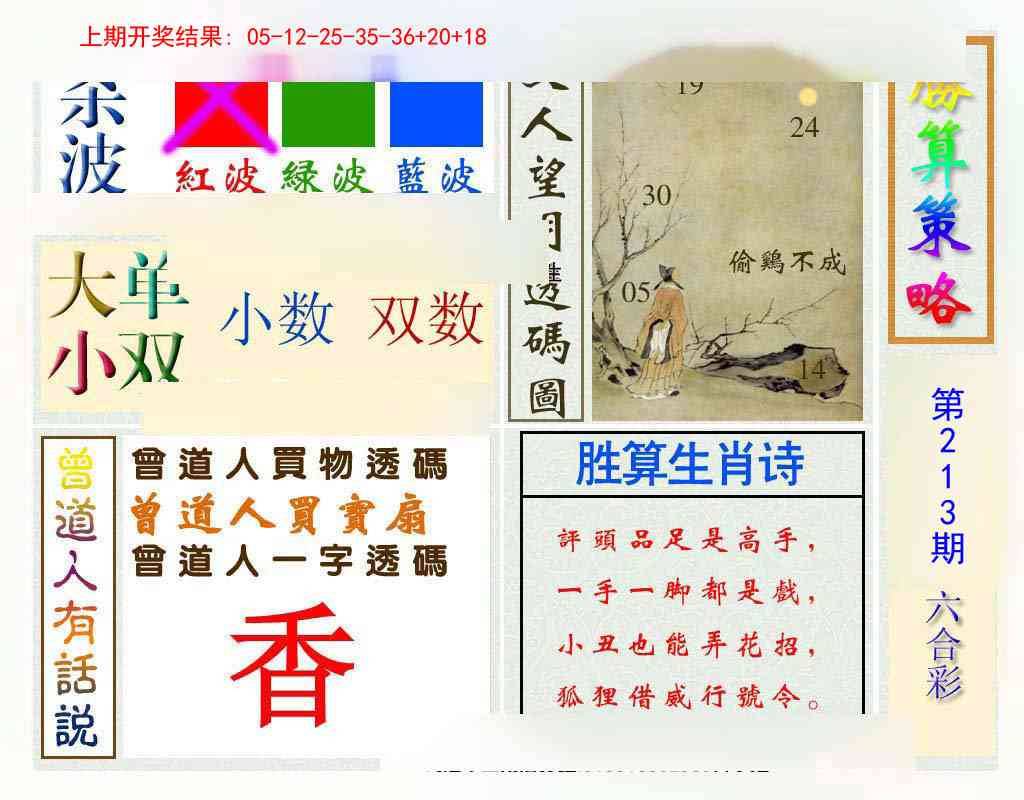 上期开奖结果: 05-12-25-35-36+20+18
杀波
紅波 緑波 藍波
大单
小双
小数 双数
人望月透碼圖
19
24
30
偷鷄不成
05
14
勝算策略
第213期
六合彩
曾道人有話説
曾道人買物透碼
曾道人買寶扇
曾道人一字透碼
香
胜算生肖诗
評頭品足是高手，
一手一脚都是戲，
小丑也能弄花招，
狐狸借威行號令。